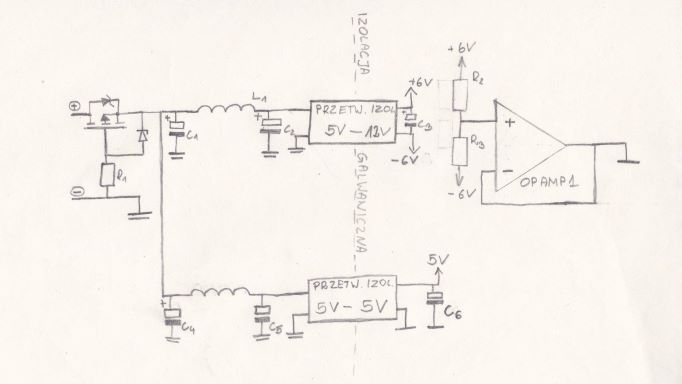 IZOLACJA
GALWANICZNA
+
-
R1
+
C1
L1
+
C2
PRZETW. IZOL
5V - 12V
+6V
+
C3
-6V
+6V
R2
R3
-6V
+
-
OPAMP1
+
C4
C5
PRZETW. IZOL
5V - 5V
5V
C6